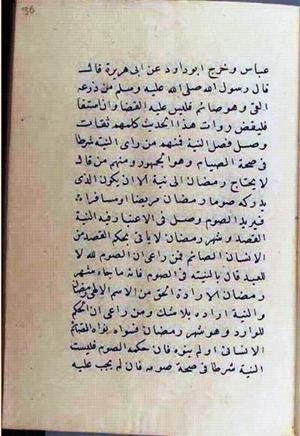 36
عباس وخرج ابو داود عن ابى هريرة قال
قال رسول الله صلى الله عليه وسلم من ذرعه
القئ وهو صائم فليس عليه القضا وان استقا
فليقض روات هذا الحديث كلهم ثقات
وصل فصل النية فمنهم من راى النية شرطا
فى صحة الصيام وهو الجمهور ومنهم من قال
لا يحتاج رمضان الى نية الا ان يكون الذى
يدركه صوم رمضان مريضا او مسافرا
فيريد الصوم وصل فى الاعتبار فيه النية
القصد وشهر رمضان لا يأتى بحكم القصد من
الانسان الصائم فمن راعى ان الصوم لله لا
للعبد قال بالنية فى الصوم فانه ما جاء شهر
رمضان الا بارادة الحق من الاسم الالهى رمضان
والنية ارادة بلا شك ومن راعى ان الحكم
للوارد وهو شهر رمضان فسواء نواه الصائم
الانسانى او لم ينوه فان حكمه الصوم فليست
النية شرطا فى صحة صومه فان لم يجب عليه